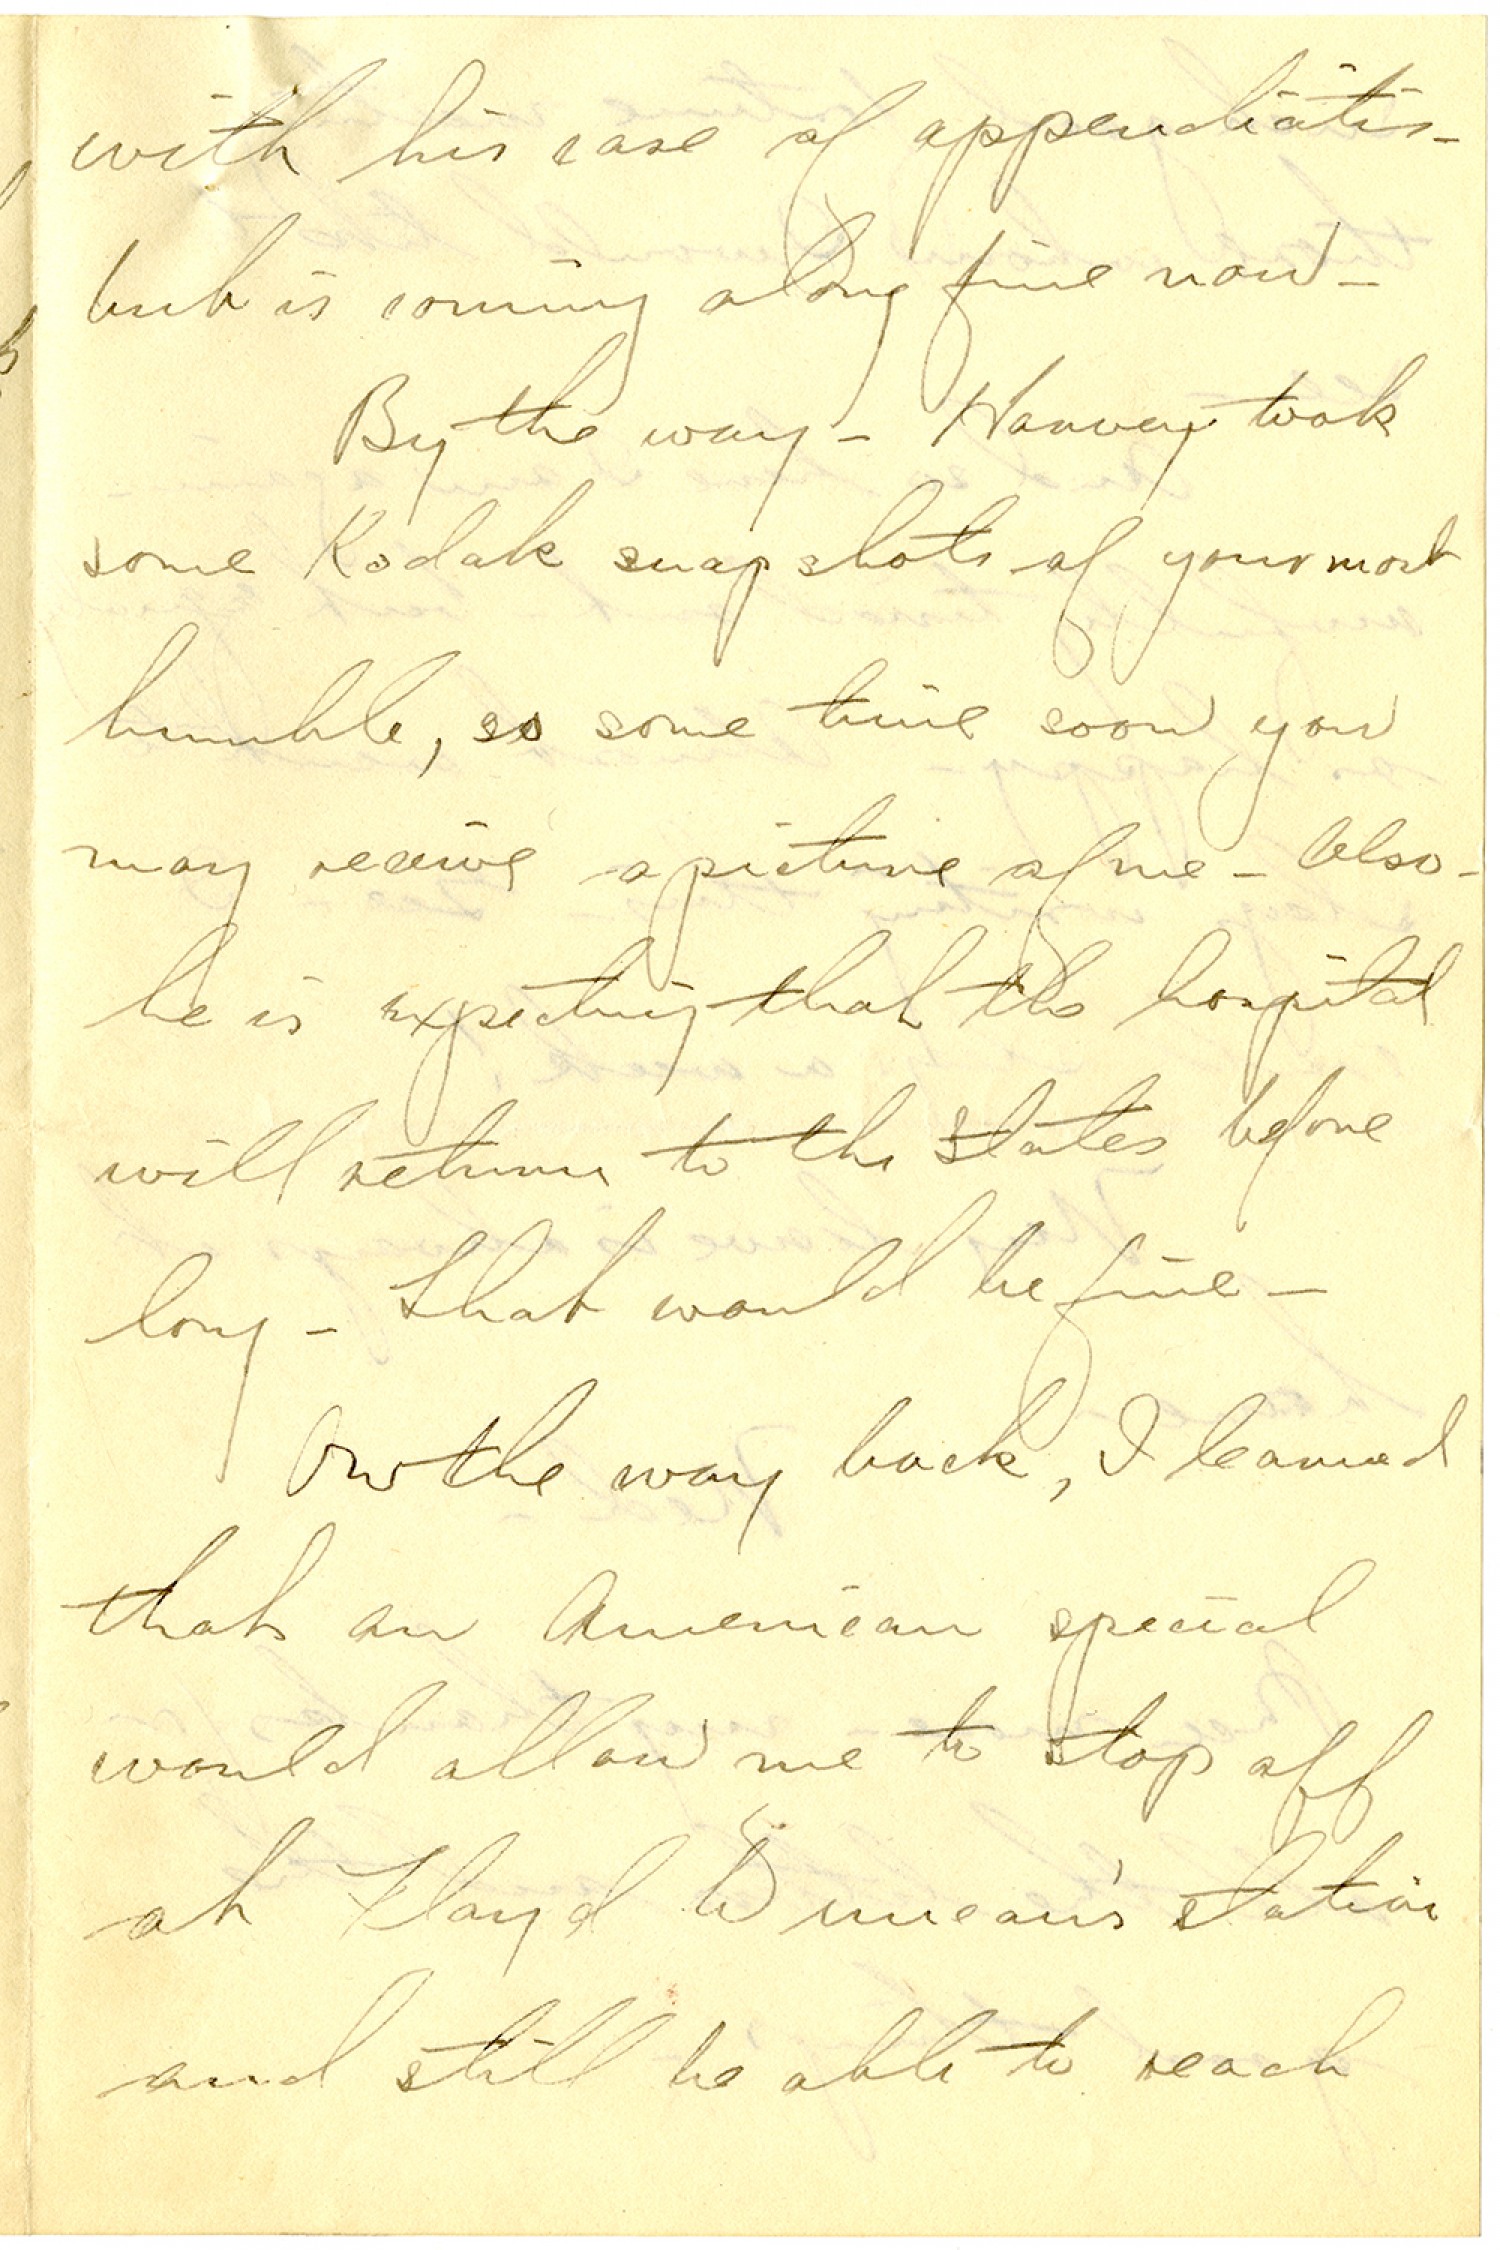 with his case of appendicitis -
but is coming along fine now -
By the way - Harvey took
some Kodak snapshots of your most
humble, so some time soon you
may receive a picture of me - Also -
he is expecting that the hospital
will return to the States before
long - that would be fine -
On the way back, I learned
that an American special
would allow me to stop off
at Floyd Duncan's station
and still be able to reach